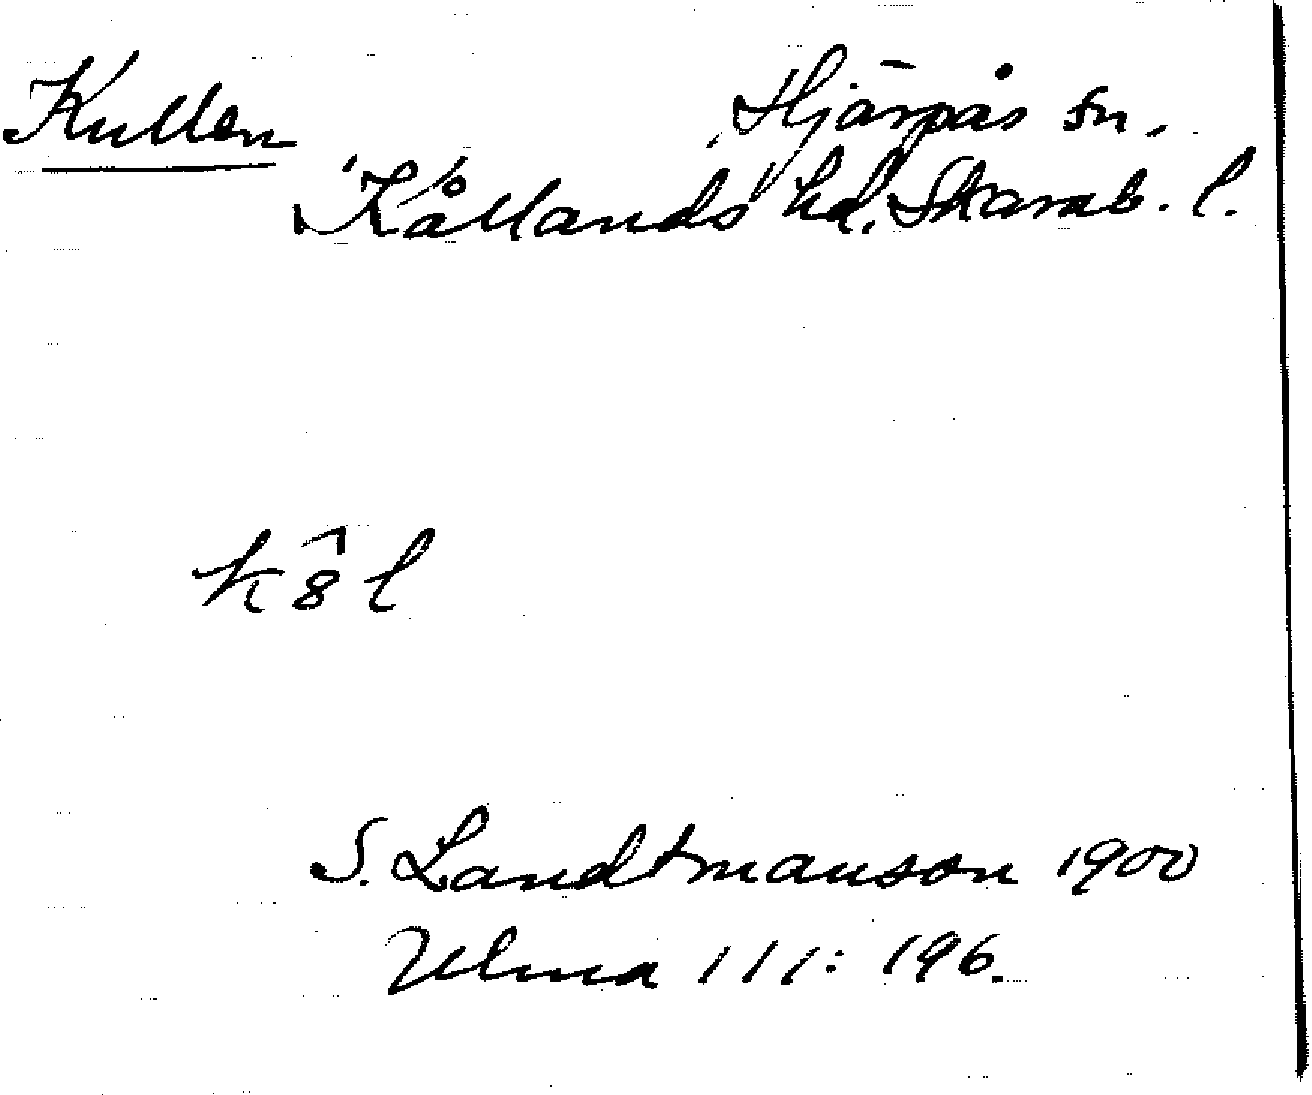 Kullen
Hjärpås sn.
Kållands hd. Skarab. l.
S. Landtmanson 1900
Ulma 111: 196.